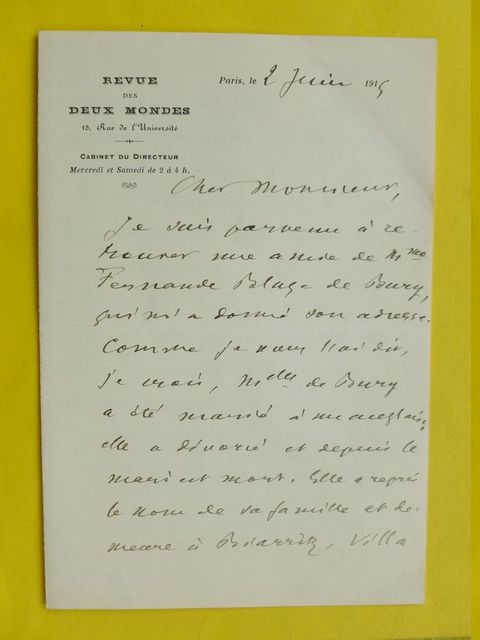 REVUE
DES
DEUX MONDES
15, Rue de l'Université
CABINET DU DIRECTEUR
Mercredi et Samedi de 2 à 4 h.
Paris, le 2 Juin 1915
Cher Monsieur,
Je suis parvenu à re-
trouver une amie de Mme
Fernande Blaze de Bury,
qui m'a donné son adresse.
Comme je vous l'ai dit,
je crois, Melle de Bury
a été mariée à un anglais,
elle a divorcé et depuis le
mari est mort. Elle a repris
le nom de sa famille et de-
meure à Biarritz, Villa